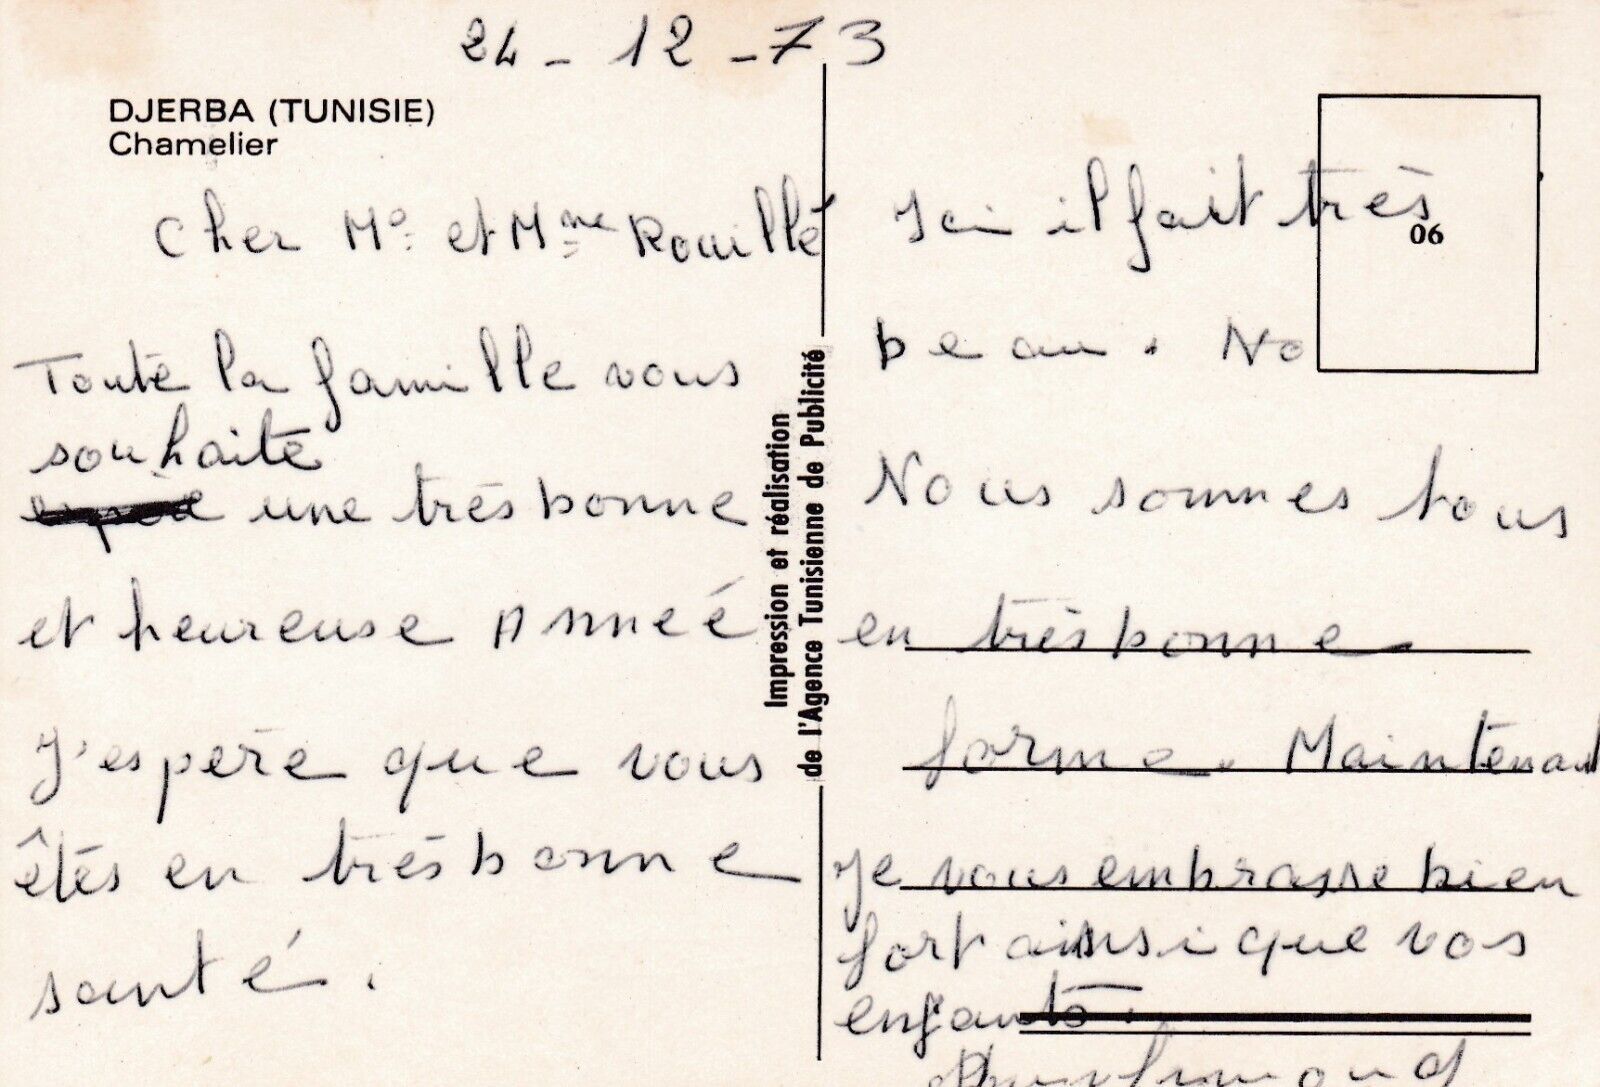 24 - 12 - 73
DJERBA (TUNISIE)
Chamelier
Cher Mo et Mme Rouillé
Toute la famille vous
souhaite
une très bonne
et heureuse Année
J'espère que vous
êtês en très bonne
santé.
Impression et réalisation
de l'Agence Tunisienne de Publicité
06
Ici il fait très
beau. No
Nous sommes tous
en très bonne
forme. Maintenant
Je vous embrasse bien
fort ainsi que vos
enfants.